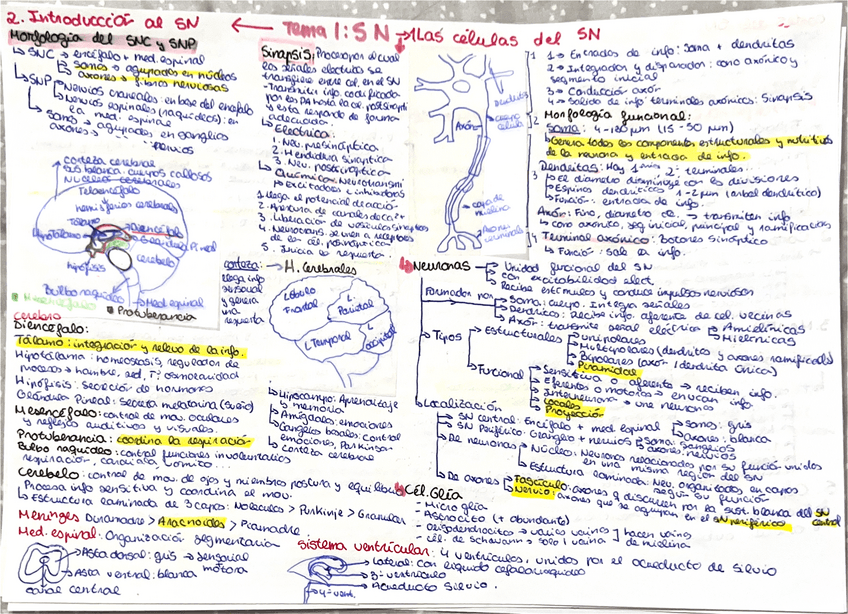 2. Introducción al SN
Tema 1: SN
Morfología del SNC y SNP
SNC → encéfalo + med. espinal
somas → agrupados en núcleos
axones → fibras nerviosas
SNP
Nervios craneales: en base del encéfalo
Nervios espinales (raquídeos): en
la med. espinal
Somas → agrupados en ganglios
axones → nervios
corteza cerebral
sust. blanca: cuerpos callosos
Núcleos cerebrales
Telencéfalo
hemisferios cerebrales
Tálamo
Diencéfalo
Hipotálamo
Hipófisis
cerebelo
Bulbo raquídeo
Med. espinal
Mesencéfalo
Protuberancia
cerebro
Diencéfalo:
Tálamo: integración y relevo de la info.
Hipotálamo: homeostasis, regulador de
hambre, sed, Tª, osmolaridad
Hipófisis: secreción de hormonas
Glándula Pineal: secreta melatonina (sueño)
Mesencéfalo: control de mov. oculares
y reflejos auditivos y visuales
Protuberancia: coordina la respiración
Bulbo raquídeo: control funciones involuntarias
respiración, cardíaca, vómito...
Cerebelo: control de mov. de ojos y miembros postura y equilibrio
Procesa info sensitiva y coordina el mov.
Estructura laminada de 3 capas: Molecular > Purkinje > Granular
Meninges Duramadre > Aracnoides > Piamadre
Med. espinal: Organización segmentaria
Asta dorsal: gris → sensorial
Asta ventral: blanca motora
canal central
Sinapsis: Proceso por el cual
las señales eléctricas se
transfiere entre cél. en el SN
- Transmitir info codificada
por los PA hasta la cél. postsinápt.
y esta responda de forma
adecuada
Eléctrica:
1. Neu. presináptica
2. Hendidura sináptica
3. Neu. postsináptica
Química: Neurotransmi
excitadores e inhibidores
1. Llega el potencial de acción
2. Apertura de canales de Ca2+
3. Liberación de vesículas sinápticas
4. Neurotrans. se unen a receptores
de la cél. postsináptica
5. Inicia la respuesta.
corteza:
llega info
y genera
una
respuesta
H. Cerebrales
Lóbulo
Frontal
L.
Parietal
L. Temporal
L.
Occipital
Hipocampo: Aprendizaje
y memoria
Amígdalas: emociones
Ganglios basales: control
emociones, Parkinson
Corteza cerebral
sistema ventricular: 4 ventrículos, unidos por el acueducto de Silvio
Lateral: con líquido cefalorraquídeo
3º ventrículo
Acueducto Silvio.
4º vent.
1 Las células del SN
Dendritas
cuerpo
celular
Axón
capa de
mielina
Axón
terminales
1 → Entradas de info: Soma + dendritas
2 → Integrador y disparador: cono axónico y
segmento inicial
3 → Conducción axón
4 → Salida de info: terminales axónicos: Sinapsis
Morfología funcional:
Soma: 4-120 µm (15-50 µm)
Genera todos los componentes estructurales y nutritivos
de la neurona y entrada de info.
Dendritas: Hay 1arias, 2arias terminales.
el diámetro disminuye con las divisiones
Espinas dendríticas 1-2 µm (árbol dendrítico)
Función: entrada de info.
Axón: Fino, diámetro cte. → transmiten info
cono axónico, seg. inicial, principal y ramificación
Terminal axónico: Botones sináptico
Función: Sale la info.
Neuronas
Unidad funcional del SN
con excitabilidad eléct.
Recibe estímulos y conduce impulsos nerviosos
Formados por
Soma: cuerpo. Integra señales
Dendrita: recibe info. aferente de cél. vecinas
Axón: transmite señal eléctrica
Amielínicas
Mielínicas
Tipos
Estructurales
unipolares
Multipolares (dendritas y axones ramificados)
Bipolares (axón 1 dendrita única)
Piramidal
Funcional
Sensitiva o aferente → reciben info.
Eferentes o motoras → envían info
Interneurona → une neuronas
Locales
Proyección
Localización
SN central: Encéfalo + med. espinal
somas: gris
axones: blanca
SN Periférico: Ganglios + nervios
Soma: ganglios
axones: nervios
De neuronas
Núcleo: Neuronas relacionadas por su función unidas
en una misma región del SN
Estructura laminada: Neu. organizadas en capas
según su función
De axones
Fascículo: axones q discurren por la sust. blanca del SN
central
Nervio: axones que se agrupan en el SN periférico
Cél. Glía
- Micro glía
- Astrocito (+ abundante)
- Oligodendrocitos → varias vainas
- Cél. de Schwann → solo 1 vaina
hacen vaina
de mielina